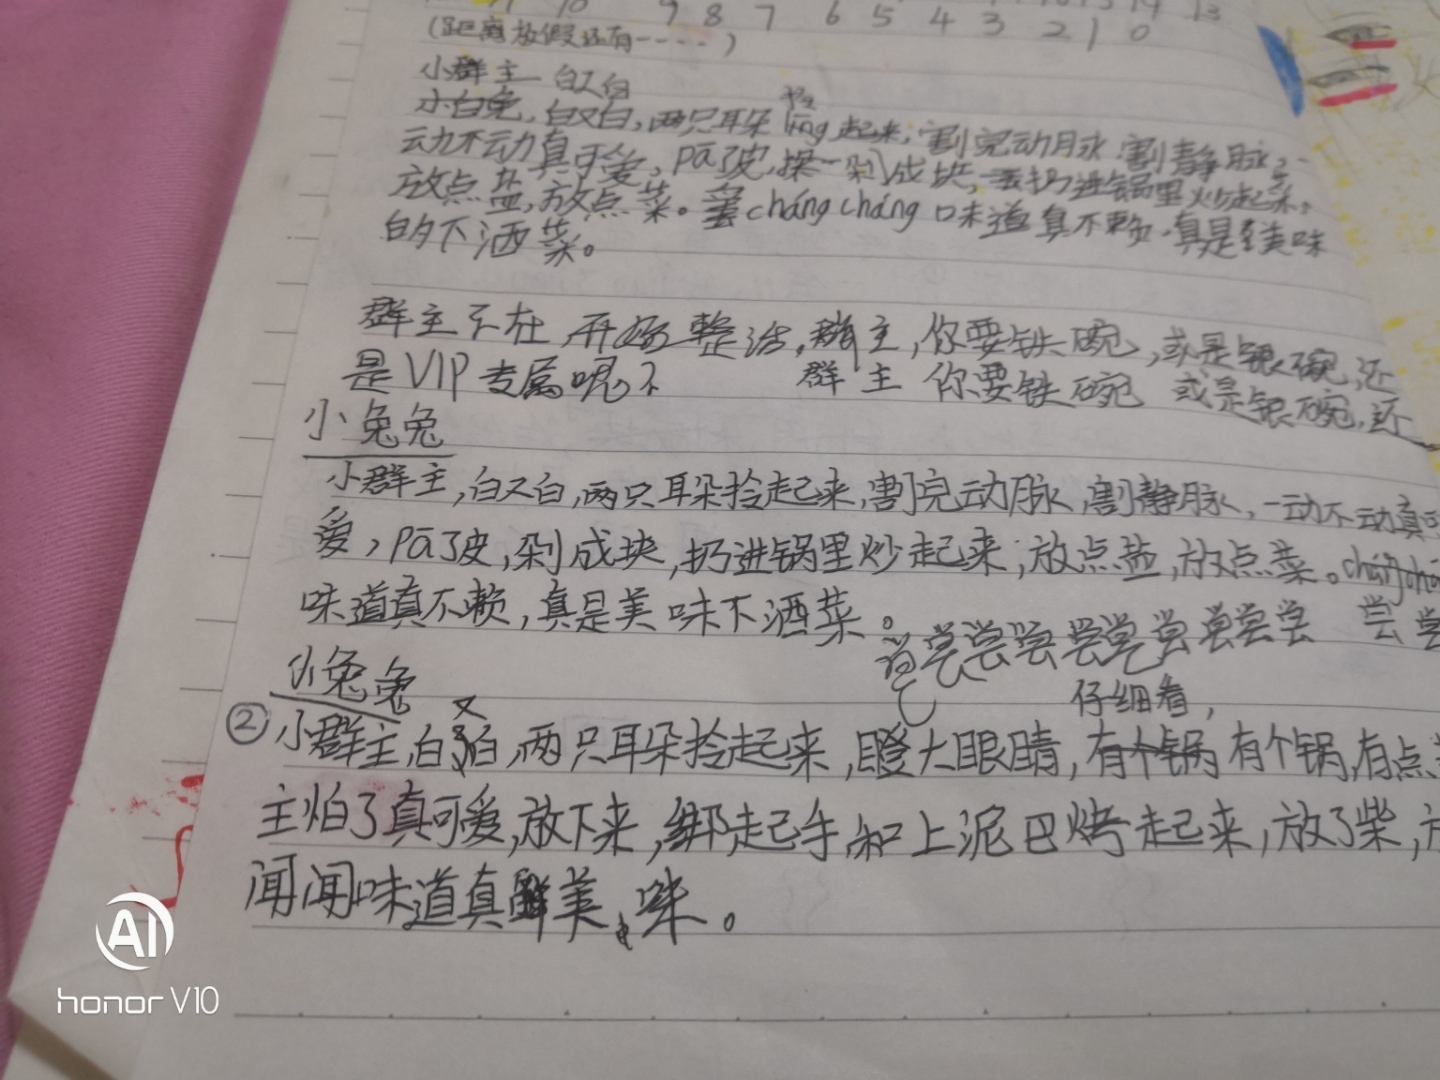 10 9 8 7 6 5 4 3 2 1 0
(距离放假还有-----)
小群主 白又白
小白兔,白又白,两只耳朵líng起来,割完动脉割静脉,一
动不动真可爱,pā了皮,剁成块,扔进锅里炒起来,
放点盐,放点菜。cháng cháng 味道真不赖,真是美味
的下洒菜。
群主不在 开始整活,群主,你要铁碗,或是银碗,还
是VIP专属呢 群主 你要铁碗 或是银碗,还
小兔兔
小群主,白又白,两只耳朵拎起来,割完动脉,割静脉,一动不动真可
爱,pā了皮,剁成块,扔进锅里炒起来,放点盐,放点菜。cháng
味道真不赖,真是美味下洒菜。
尝尝尝尝尝尝尝尝尝 尝
小兔兔
仔细看,
②小群主,白又白,两只耳朵拎起来,瞪大眼睛,有个锅有个锅,有点
主怕了真可爱,放下来,绑起手,和上泥巴烤起来,放了柴,
闻闻味道真鲜美味。
AI
honor V10